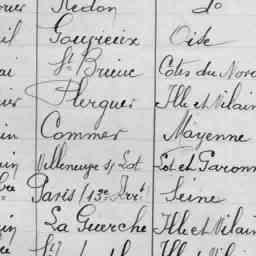 Redon do
Gouvieux Oise
St Brieuc Cotes du Nord
Plerguer Ille et Vilain
Commer Mayenne
Villeneuve s/ Lot Lot et Garonn
Paris (13e Arrt) Seine
La Guerche Ille et Vilain